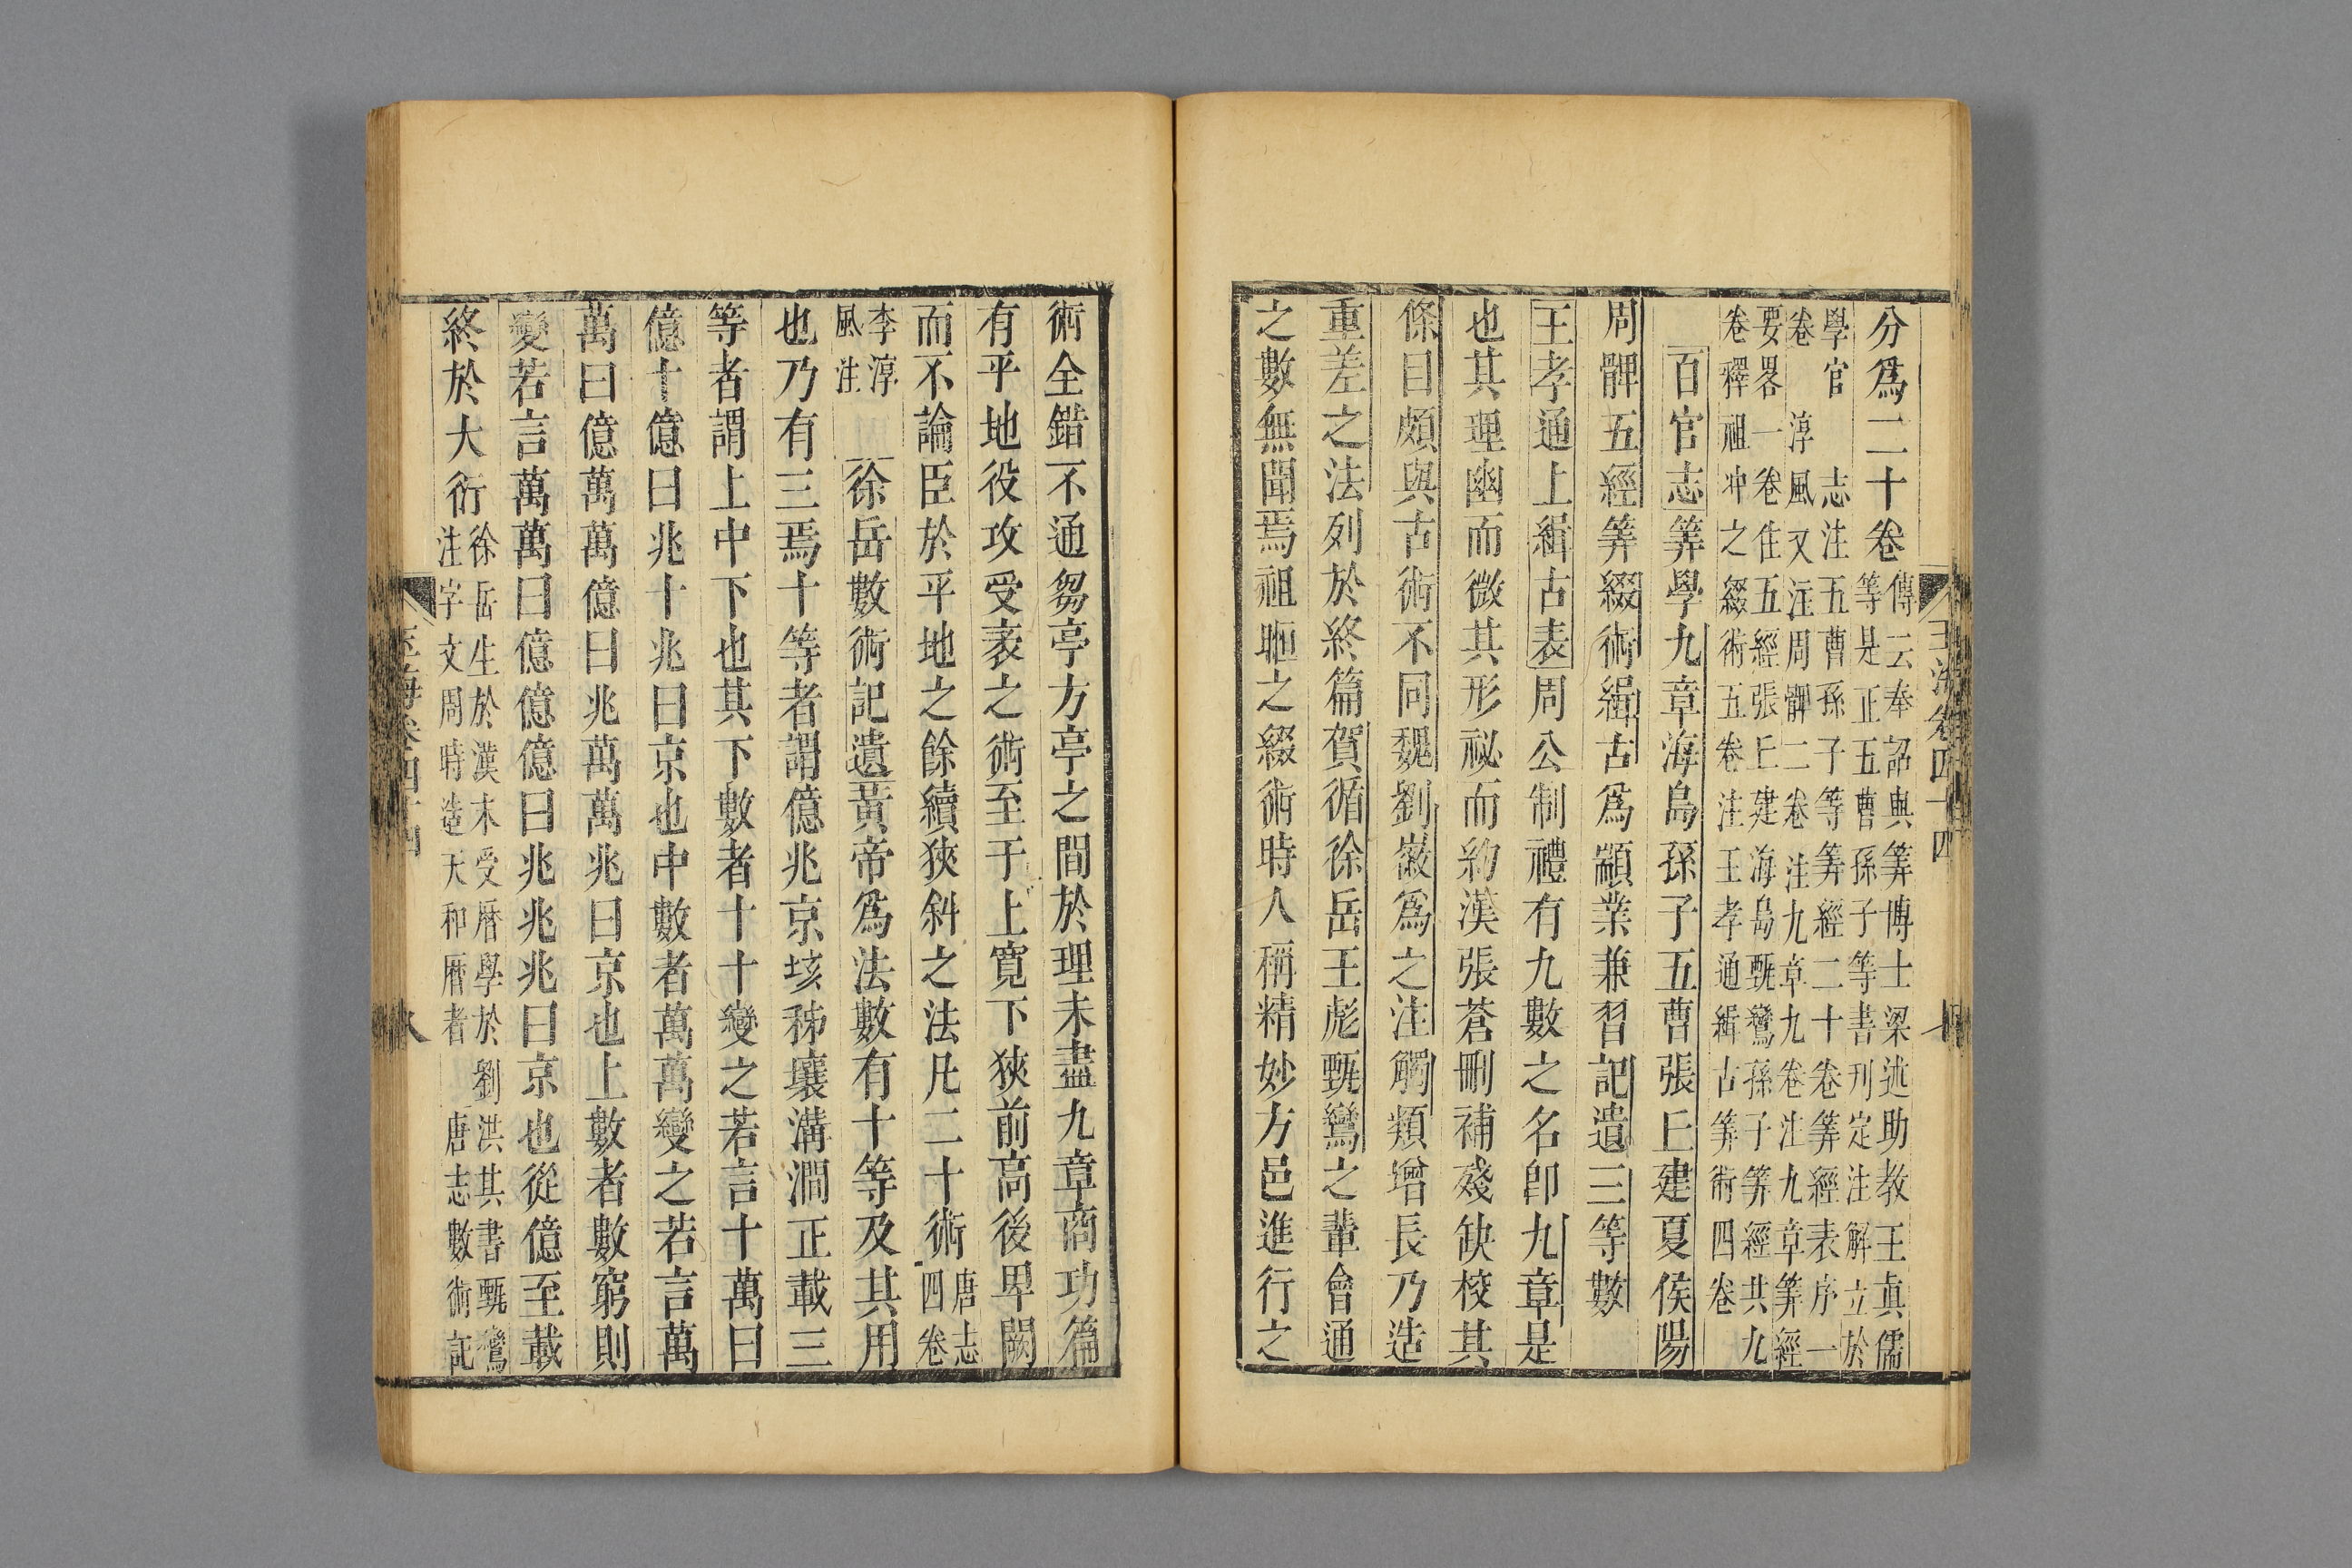 玉海卷四十四
分爲二十卷傳云奉詔與筭博士梁述助教王眞儒
等是正五曹孫子等書刋定注解立於
學官 志注五曹孫子等筭經二十卷筭經表序一
卷 淳風又注周髀二卷注九章九卷注九章筭經
要畧一卷注五經張丘建海島甄鸞孫子筭經共九
卷釋祖沖之綴術五卷注王孝通緝古筭術四卷
百官志筭學九章海島孫子五曹張丘建夏侯陽
周髀五經筭綴術緝古爲顓業兼習記遺三等數
王孝通上緝古表周公制禮有九數之名卽九章是
也其理幽而微其形祕而約漢張蒼刪補殘缺校其
條目頗與古術不同魏劉徽爲之注觸類增長乃造
重差之法列於終篇賀循徐岳王彪甄鸞之輩會通
之數無聞焉祖暅之綴術時人稱精妙方邑進行之
術全錯不通芻亭方亭之間於理未盡九章商功篇
有平地役攻受袤之術至于上寬下狹前高後卑闕
而不論臣於平地之餘續狹斜之法凡二十術唐志
四卷
李淳
風注 徐岳數術記遺黃帝爲法數有十等及其用
也乃有三焉十等者謂億兆京垓秭壤溝澗正載三
等者謂上中下也其下數者十十變之若言十萬曰
億十億曰兆十兆曰京也中數者萬萬變之若言萬
萬曰億萬萬億曰兆萬萬兆曰京也上數者數窮則
變若言萬萬曰億億億曰兆兆兆曰京也從億至載
終於大衍徐岳生於漢末受曆學於劉洪其書甄鸞
注字文周時造天和曆者 唐志數術記
玉海卷四十四
八